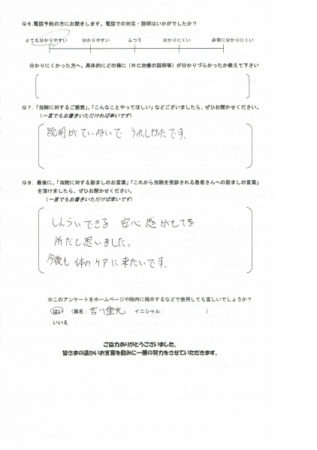 Q6.電話予約の方にお聞きします。電話での対応・説明はいかがでしたか？
とても分かりやすい 分かりやすい ふつう 分かりにくい 非常に分かりにくい
分かりにくかった方へ。具体的にどの様に（RC治療の説明等）が分かりづらかったか教えて下さい
Q7.「当院に対するご感想」、「こんなことやってほしい」などございましたら、ぜひお聞かせください。
（一言でもお書きいただければ幸いです）
説明がていねいで うれしかたです。
Q8.最後に、「当院に対する励ましのお言葉」「これから当院を受診される患者さんへの励ましの言葉」
を頂けましたら、ぜひお聞かせください。
（一言でもお書きいただければ幸いです）
しんらいできる 安心感がもてる
所だと思いました。
今後も 体のケアに来たいです。
※このアンケートをホームページや院内に掲示するなどで使用しても宜しいでしょうか？
はい （実名： イニシャル： ）
いいえ
ご協力ありがとうございました。
皆さまの温かいお言葉を励みに一層の努力をさせていただきます。